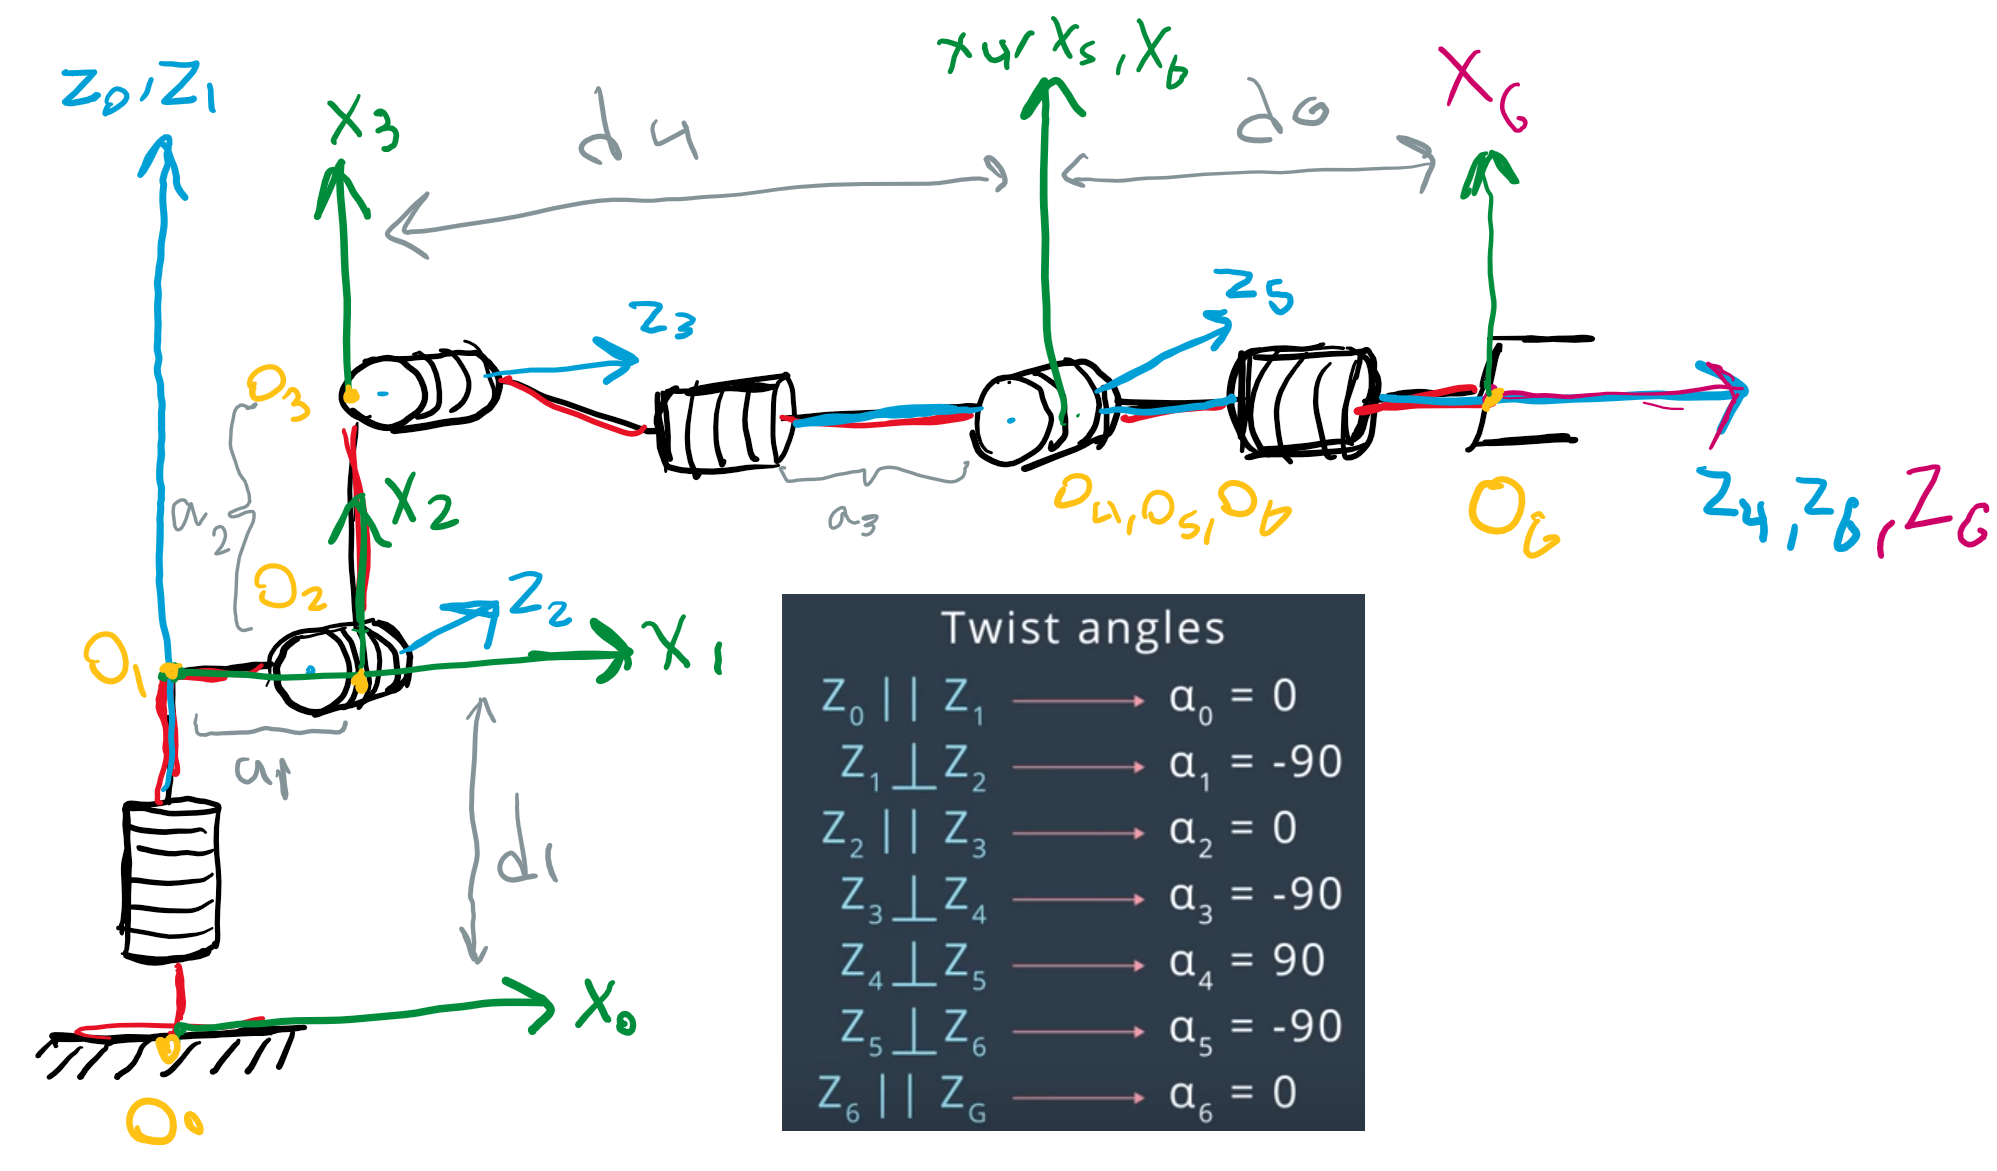 Z0, Z1
X3
d4
X4, X5, X6
dG
XG
Z3
Z5
O3
a2
X2
a3
O4, O5, O6
OG
Z4, Z6, ZG
O2
Z2
O1
X1
a1
d1
X0
O0
Twist angles
Z0 || Z1 → α0 = 0
Z1 ⊥ Z2 → α1 = -90
Z2 || Z3 → α2 = 0
Z3 ⊥ Z4 → α3 = -90
Z4 ⊥ Z5 → α4 = 90
Z5 ⊥ Z6 → α5 = -90
Z6 || ZG → α6 = 0